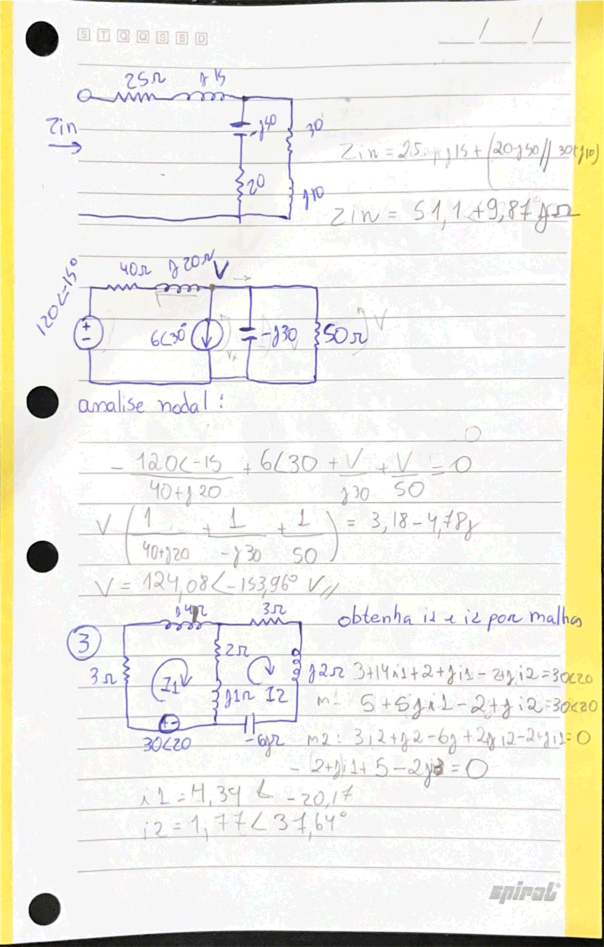 S T Q Q S S D
/ /
25Ω j15
Zin
-j40
30
20
j10
Zin = 25 + j15 + (20-j50) // 30+j10)
Zin = 51,1 + 9,87jΩ
120<-15°
40Ω j20Ω V
6<30°
-j30
50Ω
V
analise nodal:
- 120<-15 / 40+j20 + 6<30 + V / j30 + V / 50 = 0
V ( 1 / 40+j20 + 1 / -j30 + 1 / 50 ) = 3,18 - 4,78j
V = 124,08<-153,96° V//
3
j4Ω 3Ω
obtenha i1 e i2 por malhas
3Ω
2Ω
j1Ω
j2Ω
I1
I2
30<20
-6jΩ
m1: 5 + 5j i1 - 2 + j i2 = 30<20
m2: 3i2 + j2 - 6j + 2j i2 - 2 + j i1 = 0
- 2 + j i1 + 5 - 2j = 0
i1 = 4,34 < -20,17
i2 = 1,77<37,64°
spiral